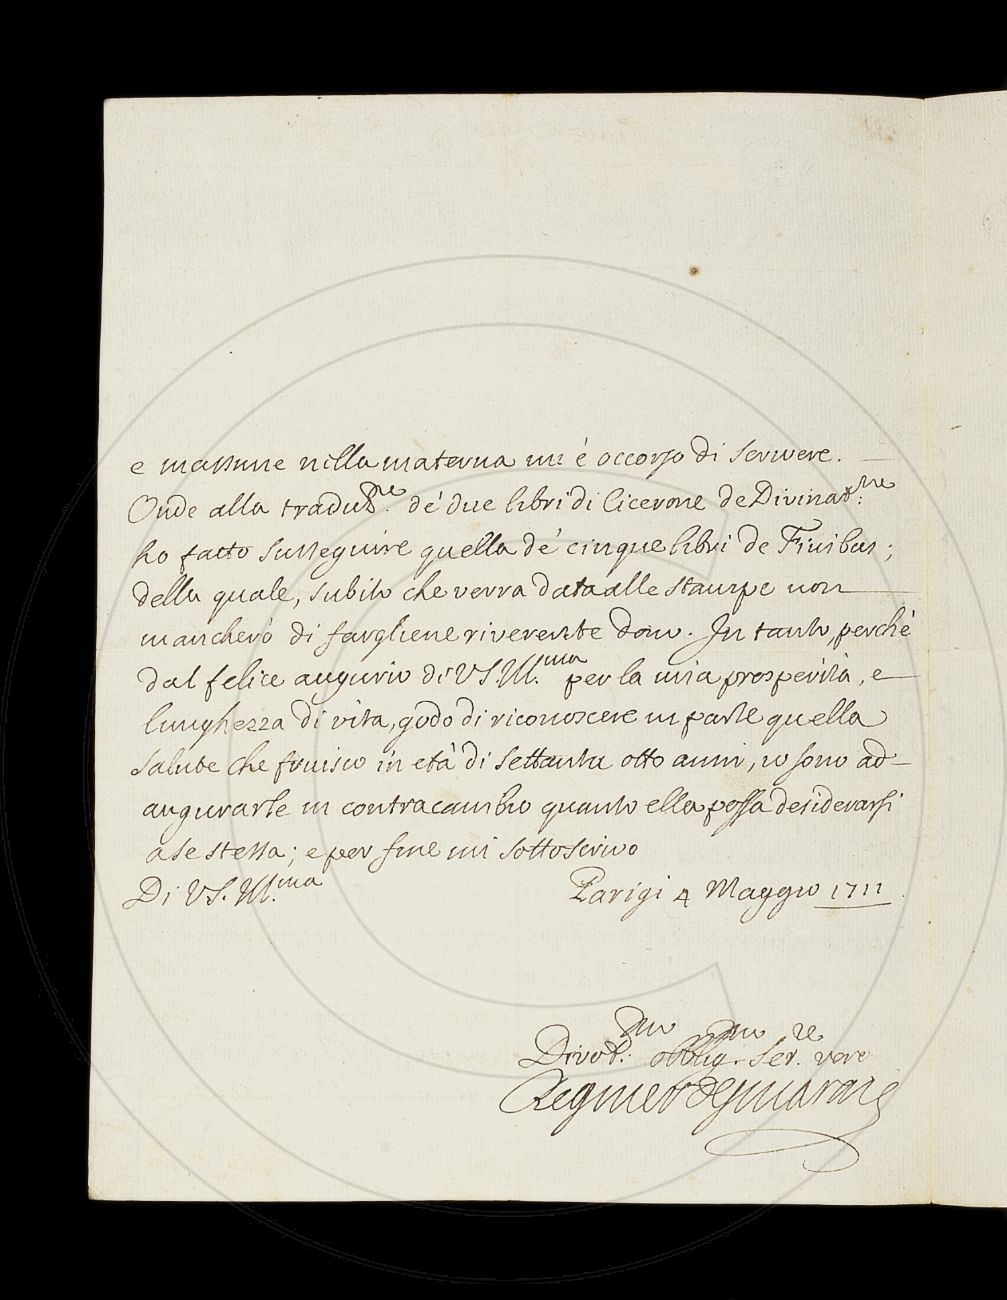 e massime nella materna mi é occorso di scrivere.
Onde alla traduz.ne dé due libri di Cicerone de Divinat.ne
ho fatto susseguire quella dé cinque libri de Finibus;
della quale, subito che verra data alle stampe non
mancheró di fargliene riverente dono. In tanto, perché
dal felice augurio di VS. Ill.ma per la mia prosperità, e
lunghezza di vita, godo di riconoscere in parte quella
salute che fruisco in età di settanta otto anni, io sono ad
augurarle in contracambio quanto ella possa desiderarsi
a se stessa; e per fine mi sottoscrivo
Di VS. Ill.ma Parigi 4 Maggio 1711
Divot.mo obblig.mo Ser.re vero
Regnier Desmarais